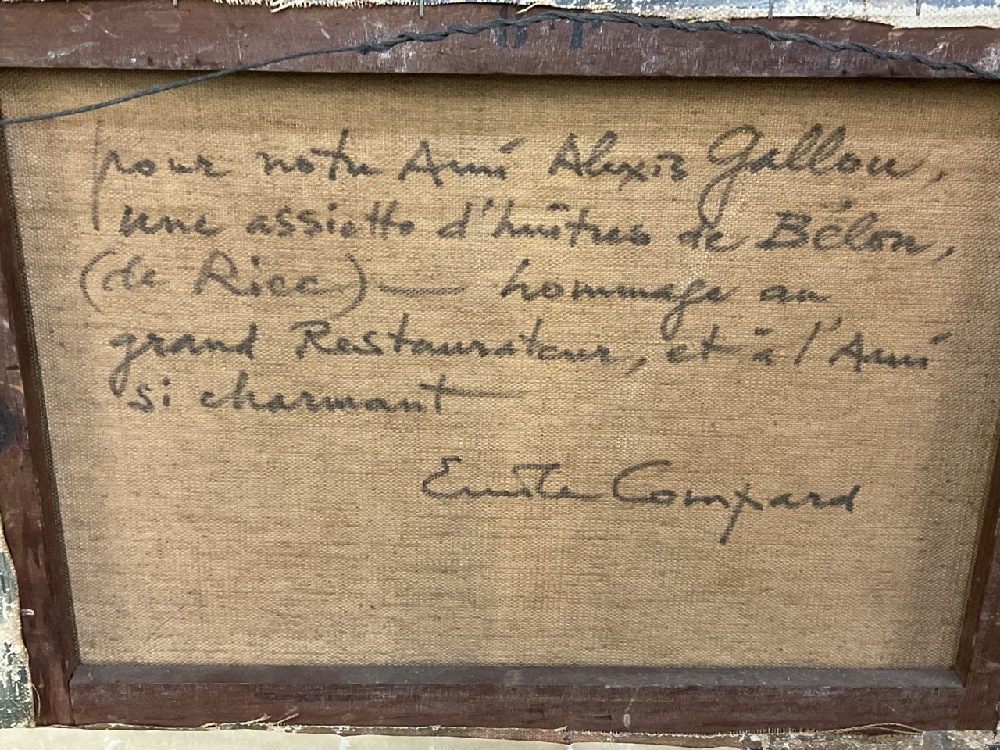 pour notre Ami Alexis Gallou,
une assiette d'huîtres de Bélon,
(de Riec) — hommage au
grand Restaurateur, et à l'Ami
si charmant
Emile Compard